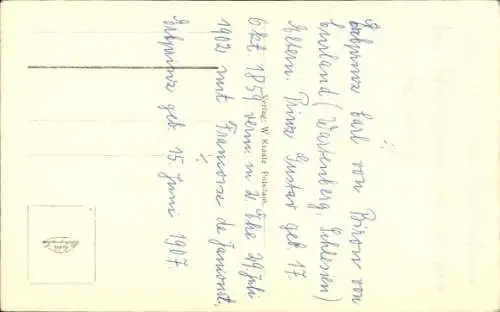 Erbprinz Karl von Biron von
Curland (Wartenberg, Schlesien)
Eltern: Prinz Gustav geb. 17.
Okt. 1859 verm. in 2. Ehe 29 juli
1902 mit Francoise de Jancourt.
Erbprinz geb. 15. Juni 1907.
Verlag: W. Knaak Potsdam.